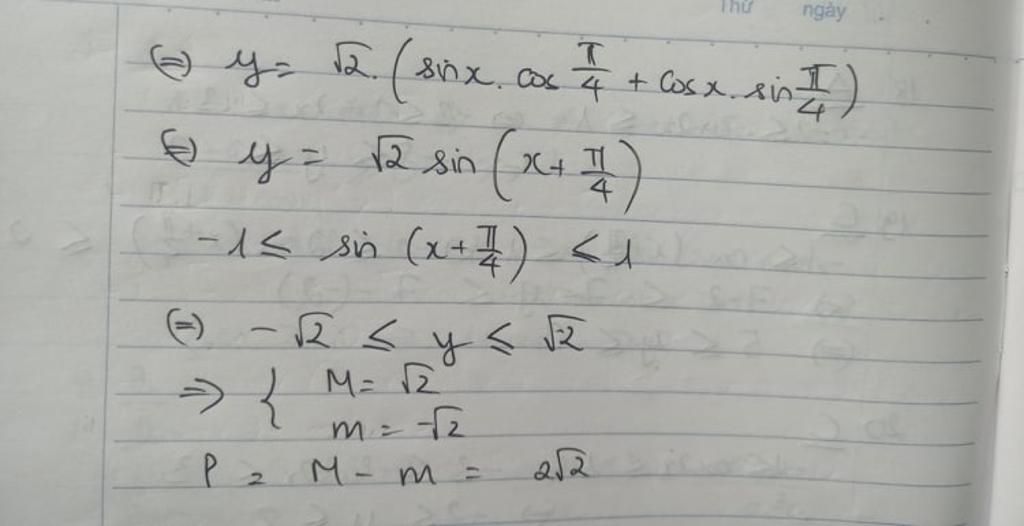 Thứ ngày
(=) y = √2. (sinx. cos π/4 + cosx. sin π/4)
(=) y = √2 sin (x + π/4)
-1 ≤ sin (x + π/4) ≤ 1
(=) -√2 ≤ y ≤ √2
=> { M = √2
m = -√2
P = M - m = 2√2